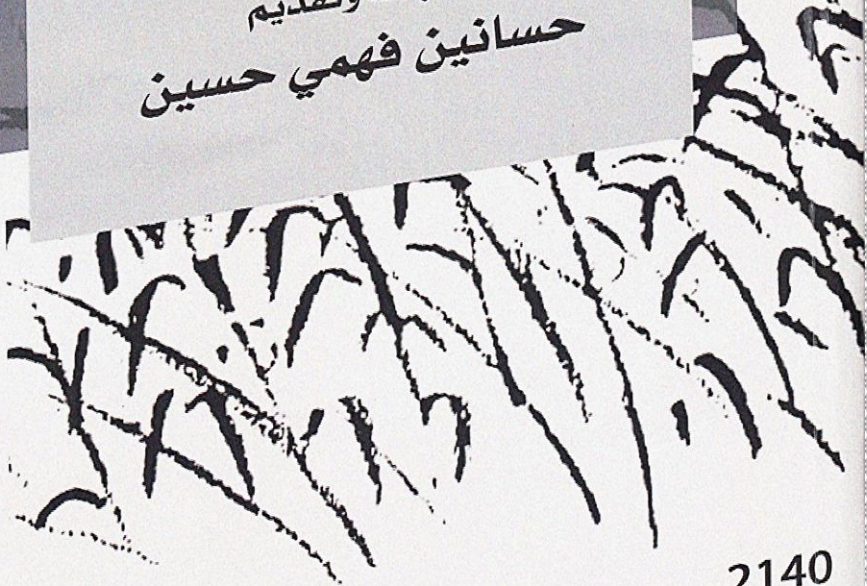 وتقديم
حسانين فهمي حسين
2140